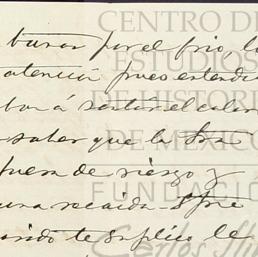 por el frio, lo
atencion pues entendi
á sentir el calor
saber que la Sra
fuera de riesgo y
una recaida. Spre
te suplico le
CENTRO DE
ESTUDIOS
DE HISTORI
DE MEXICO
FUNDACIÓ
Carlos Sli